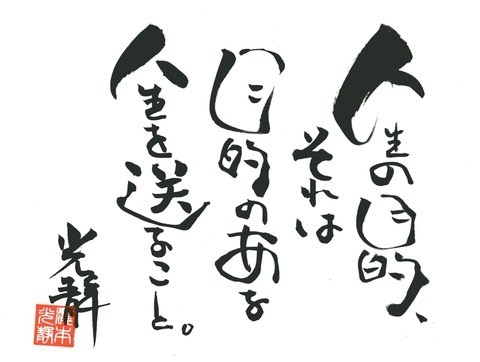 人生の目的、
それは
目的のある
人生を送ること。